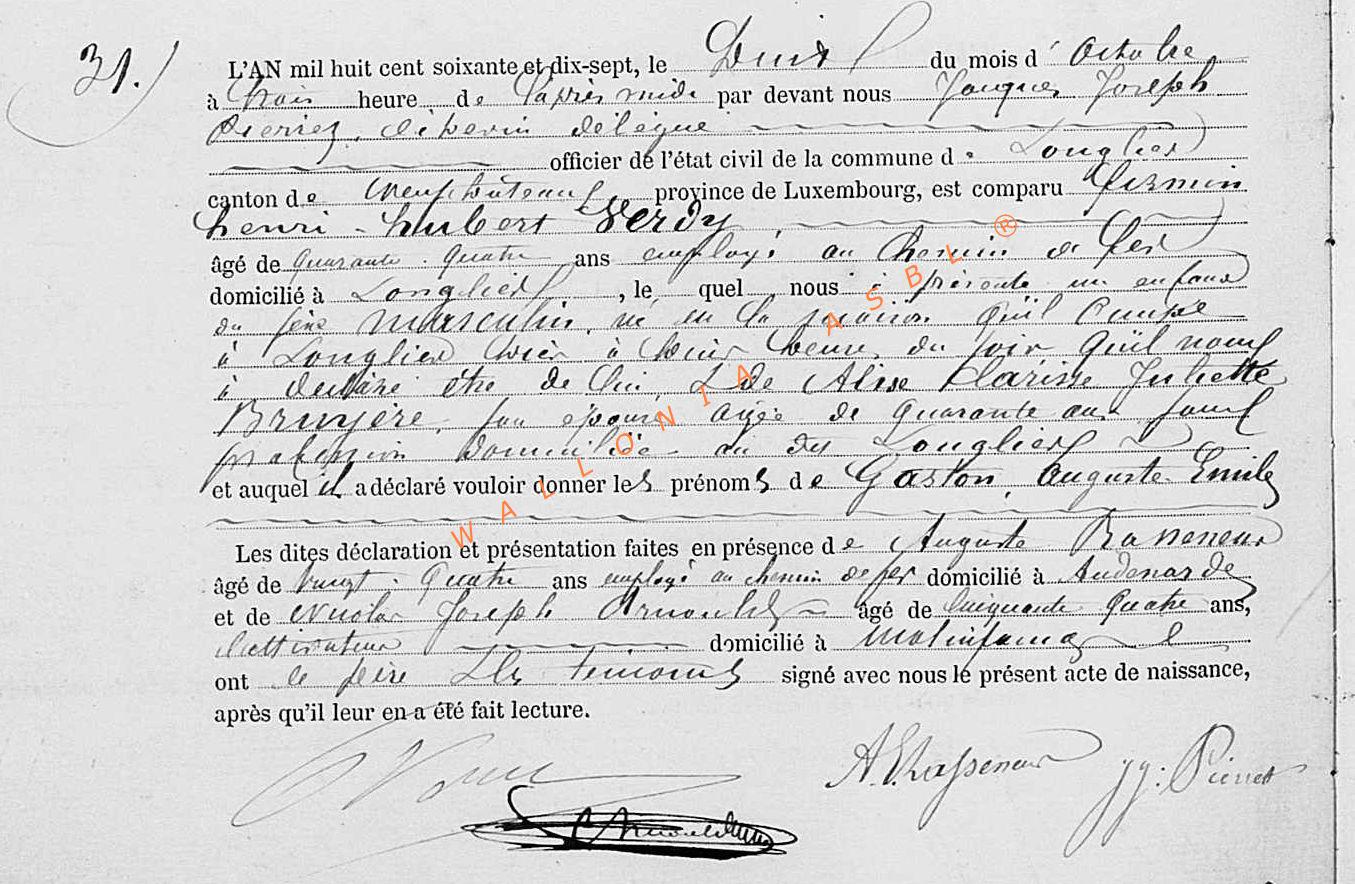 31.
L'AN mil huit cent soixante et dix-sept, le Deux du mois d' Octobre
à trois heure de l'après midi par devant nous Jacques Joseph
Pierret, échevin délégué
officier de l'état civil de la commune de Longlier
canton de Neufchâteau province de Luxembourg, est comparu Firmin
henri hubert Verdy
âgé de quarante quatre ans employé au Chemin de fer
domicilié à Longlier, le quel nous à présenté un enfant
du sèxe masculin, né en la maison qu'il occupe
à Longlier hièr à heure du soir qu'il nous
à déclaré être de lui & de Alise Clarisse Juliette
Bruyère, son épouse agée de quarante ans sans
profession domiciliée au dit Longlier
et auquel il a déclaré vouloir donner les prénoms de Gaston, Auguste Emile
Les dites déclaration et présentation faites en présence de Auguste Rasseneur
âgé de vingt quatre ans employé au chemin de fer domicilié à Audenarde
et de Nicolas Joseph Arnould âgé de cinquante quatre ans,
cultivateur domicilié à Molinfaing
ont le père & les témoins signé avec nous le présent acte de naissance,
après qu'il leur en a été fait lecture.
A. Rasseneur JJ: Pierret
WALLONIA ASBL ®